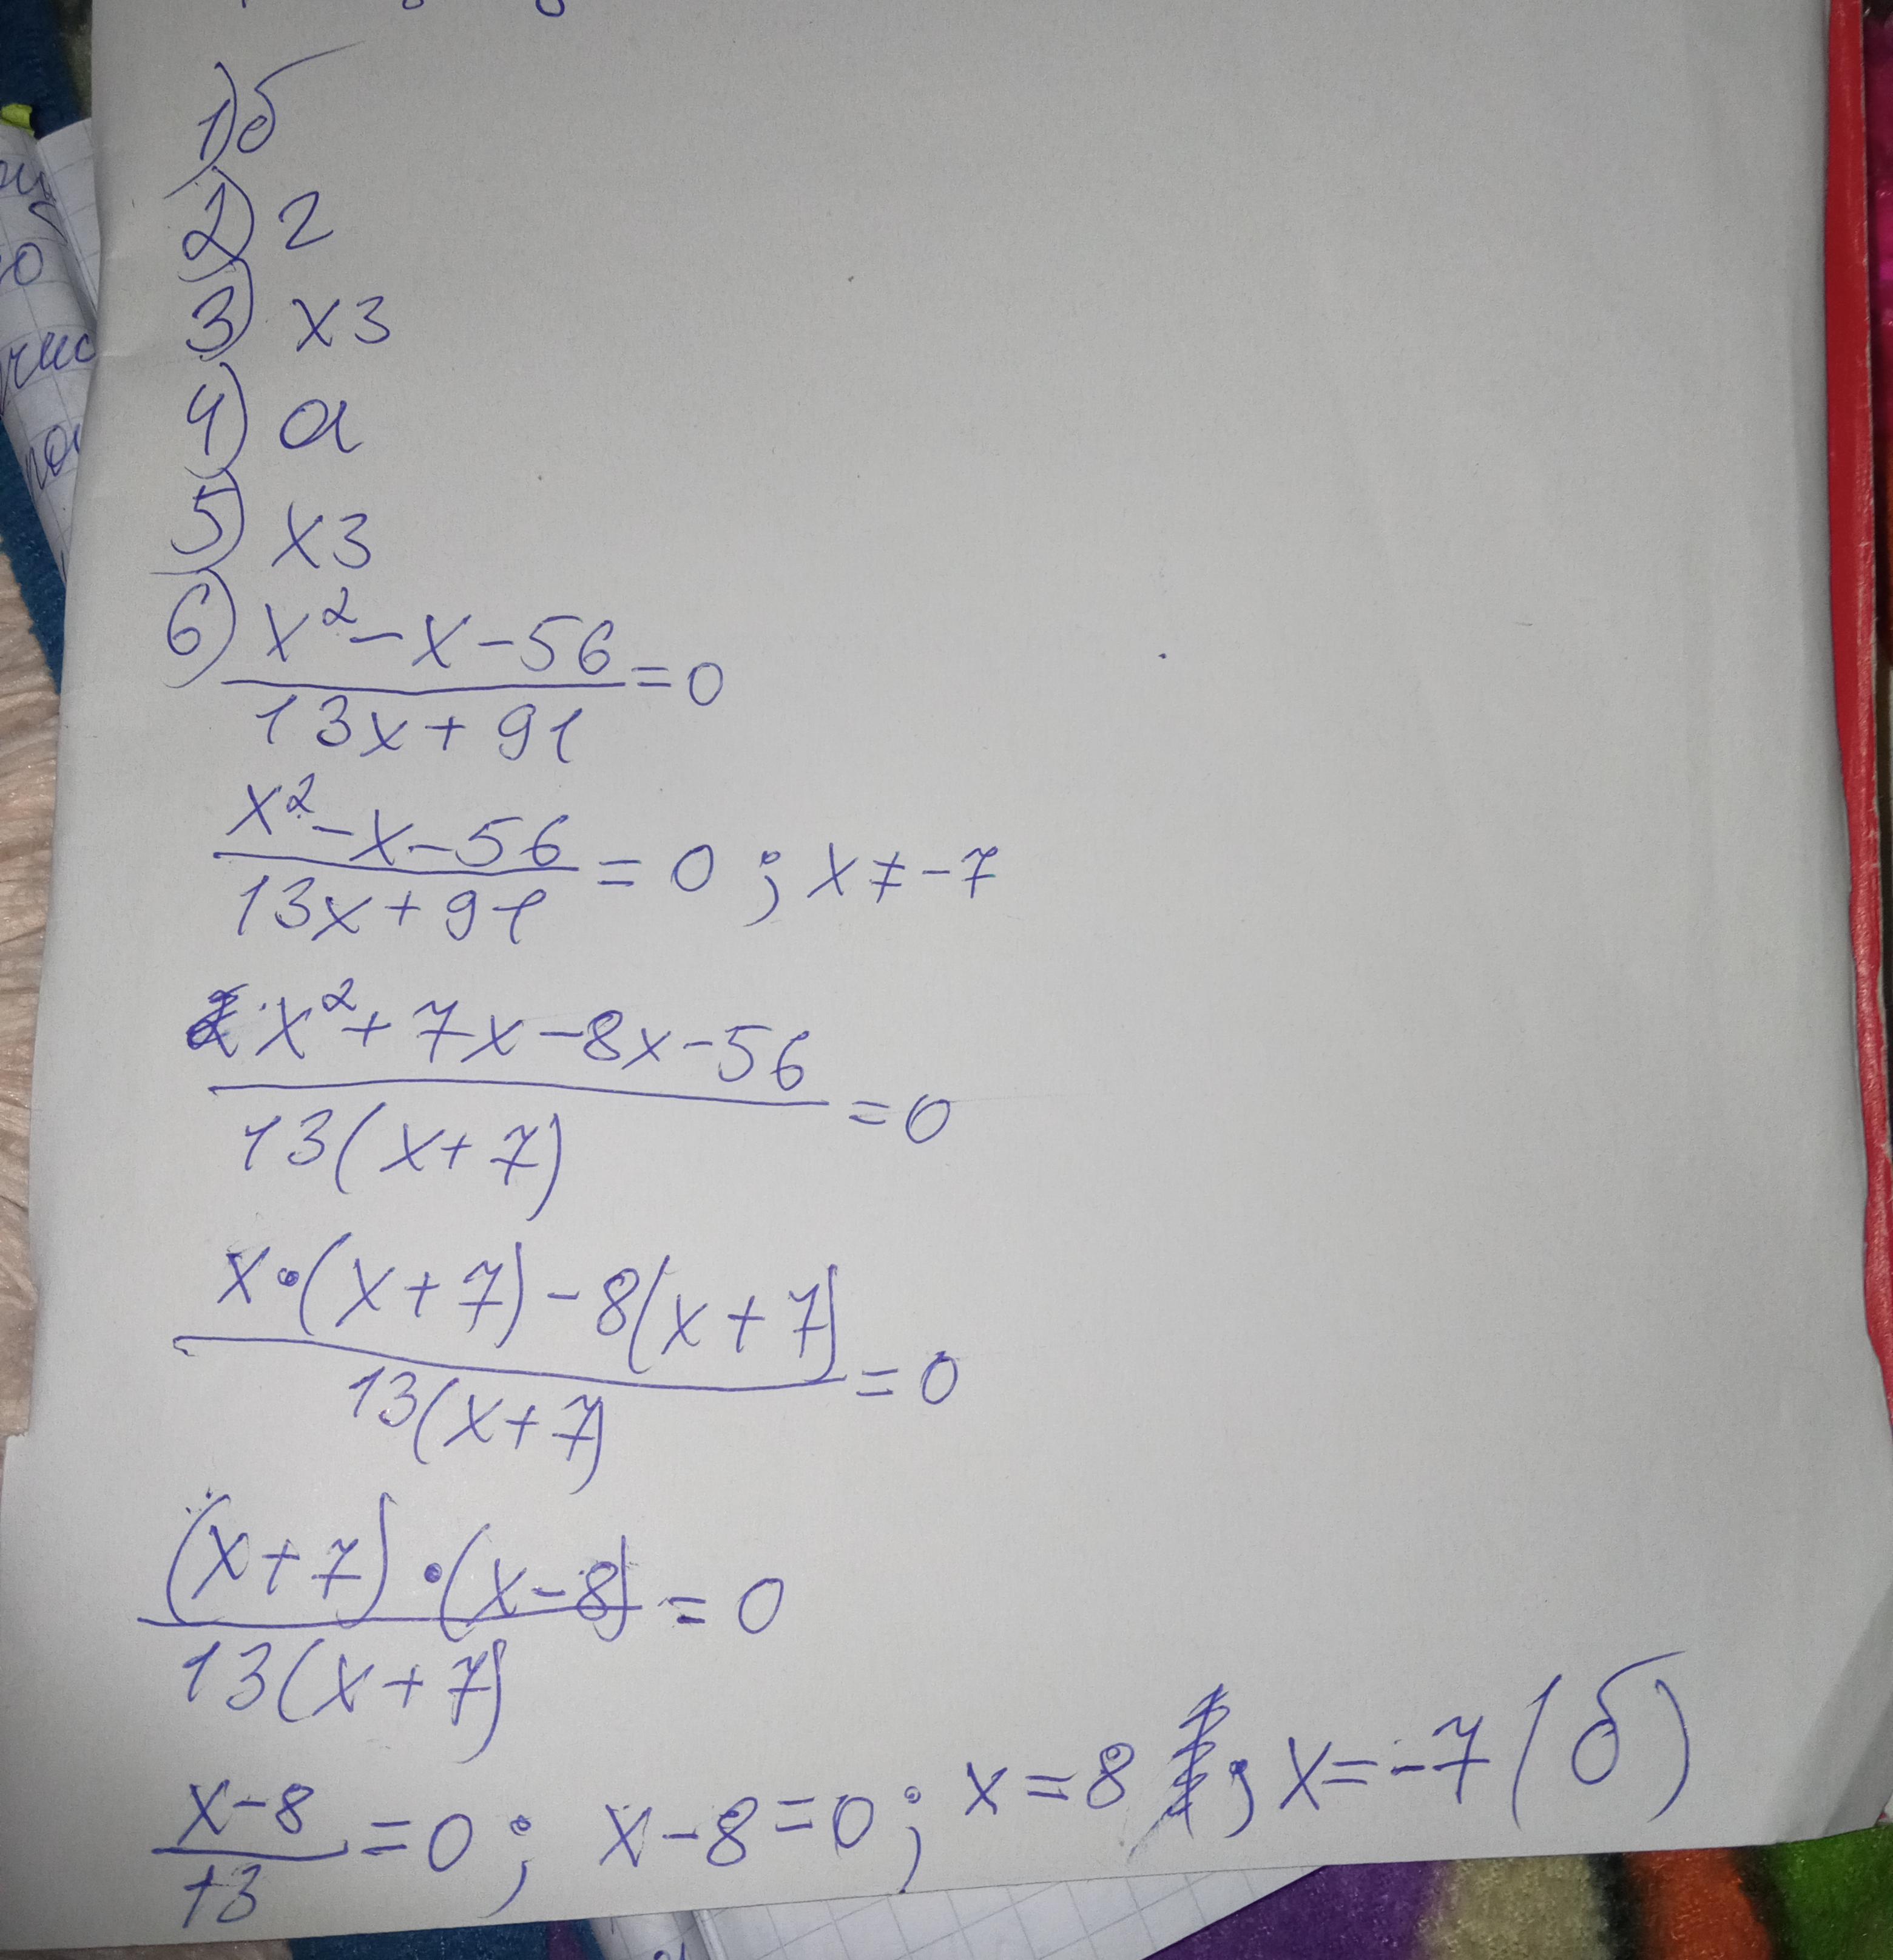 1) б
2) г
3) х з
4) а
5) х з
6) x² - x - 56 / 13x + 91 = 0
x² - x - 56 / 13x + 91 = 0 ; x ≠ -7
x² + 7x - 8x - 56 / 13(x + 7) = 0
x·(x + 7) - 8(x + 7) / 13(x + 7) = 0
(x + 7)·(x - 8) / 13(x + 7) = 0
x - 8 / 13 = 0 ; x - 8 = 0 ; x = 8 ; x = -7 (б)